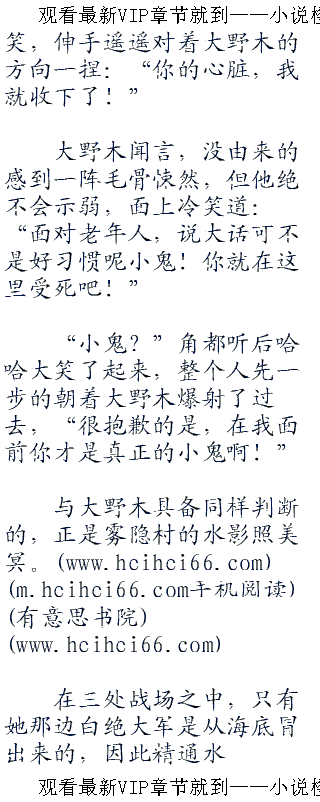 观看最新VIP章节就到——小说检
笑，伸手遥遥对着大野木的
方向一捏：“你的心脏，我
就收下了！”
大野木闻言，没由来的
感到一阵毛骨悚然，但他绝
不会示弱，面上冷笑道：
“面对老年人，说大话可不
是好习惯呢小鬼！你就在这
里受死吧！”
“小鬼？”角都听后哈
哈大笑了起来，整个人先一
步的朝着大野木爆射了过
去，“很抱歉的是，在我面
前你才是真正的小鬼啊！”
与大野木具备同样判断
的，正是雾隐村的水影照美
冥。(www.hcihci66.com)
(m.hcihci66.com手机阅读)
(有意思书院)
(www.hcihci66.com)
在三处战场之中，只有
她那边白绝大军是从海底冒
出来的，因此精通水
观看最新VIP章节就到——小说检